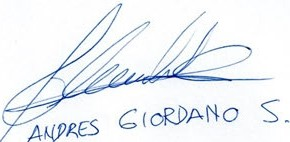 ANDRES GIORDANO S.